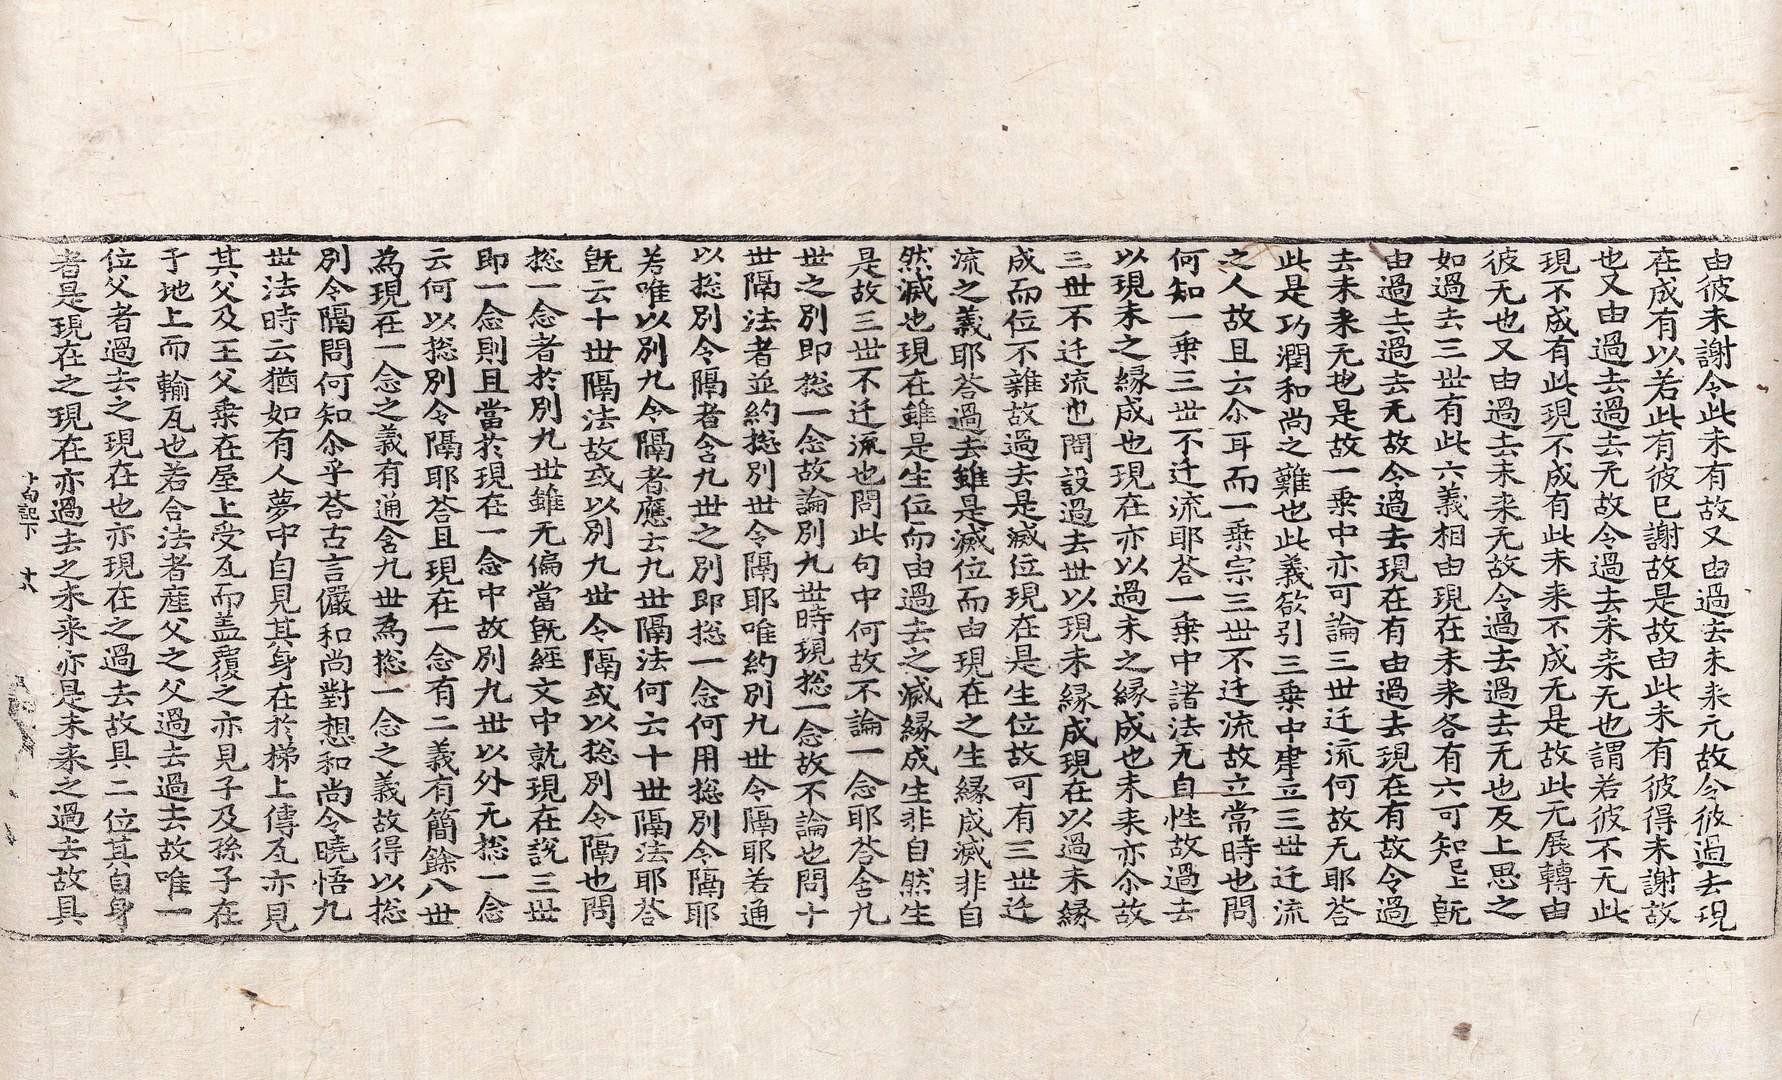 由彼未謝令此未有故又由過去未来无故令彼過去現
在成有以若此有彼已謝故是故由此未有彼得未謝故
也又由過去過去无故令過去未来无也謂若彼不无此
現不成有此現不成有此未来不成无是故此无展轉由
彼无也又由過去未来无故令過去過去无也反上思之
如過去三世有此六義相由現在未来各有六可知已上旣
由過去過去无故令過去現在有由過去現在有故令過
去未来无也是故一乗中亦可論三世迁流何故无耶荅
此是巧潤和尚之難也此義欲引三乗中建立三世迁流
之人故且云尒耳而一乗宗三世不迁流故立常時也問
何知一乗三世不迁流耶荅一乗中諸法无自性故過去
以現未之縁成也現在亦以過未之縁成也未来亦尒故
三世不迁流也問設過去世以現未縁成現在以過未縁
成而位不雜故過去是滅位現在是生位故可有三世迁
流之義耶荅過去雖是滅位而由現在之生縁成滅非自
然滅也現在雖是生位而由過去之滅縁成生非自然生
是故三世不迁流也問此句中何故不論一念耶荅含九
世之別即捴一念故論別九世時現捴一念故不論也問十
世隔法者並約捴別世令隔耶唯約別九世令隔耶若通
以捴別令隔者含九世之別即捴一念何用捴別令隔耶
若唯以別九令隔者應云九世隔法何云十世隔法耶荅
旣云十世隔法故或以別九世令隔或以捴別令隔也問
捴一念者於別九世雖无偏當旣經文中就現在說三世
即一念則且當於現在一念中故別九世以外无捴一念
云何以捴別令隔耶荅且現在一念有二義有簡餘八世
為現在一念之義有通含九世為捴一念之義故得以捴
別令隔問何知尒乎荅古言儼和尚對想和尚令曉悟九
世法時云猶如有人夢中自見其身在於梯上傳瓦亦見
其父及王父乗在屋上受瓦而盖覆之亦見子及孫子在
于地上而輸瓦也若合法者產父之父過去過去故唯一
位父者過去之現在也亦現在之過去故具二位其自身
者是現在之現在亦過去之未来亦是未来之過去故具
十句記下 十六